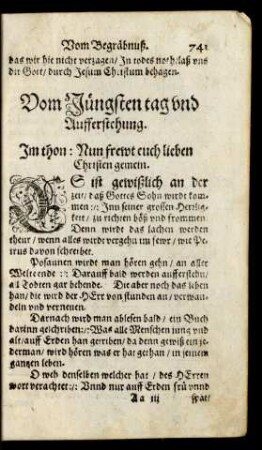 Vom Begräbnuß. 741
das wir hie nicht verzagen/ In todes noth laß vns
dir Gott/ durch Jesum Christum behagen.
Vom Jüngsten tag vnd
Aufferstehung.
Im thon: Nun frewt euch lieben
Christen gemein.
ES ist gewißlich an der
zeit/ daß Gottes Sohn wirdt kom-
men :/: Inn seiner grossen Herrlig-
keit/ zu richten böß vnd frommen
Denn wirdt das lachen werden
theur/ wenn alles wirdt vergehn im fewr/ wie Pe-
trus davon schreibet.
Posaunen wirdt man hören gehn/ an aller
Welt ende :/: Darauff bald werden aufferstehn/
all Todten gar behende. Die aber noch das leben
han/ die wird der HErr von stunden an/ verwan-
deln vnd vernewen.
Darnach wird man ablesen bald/ ein Buch
darinn geschriben :/: Was alle Menschen jung vnd
alt/ auff Erden han getriben/ da denn gewiß ein je-
derman/ wird hören was er hat gethan/ in seinem
gantzen leben.
O weh denselben welcher hat/ des HErren
wort verachtet :/: Vnnd nur auff Erden frü vnnd
Aa iij spat/